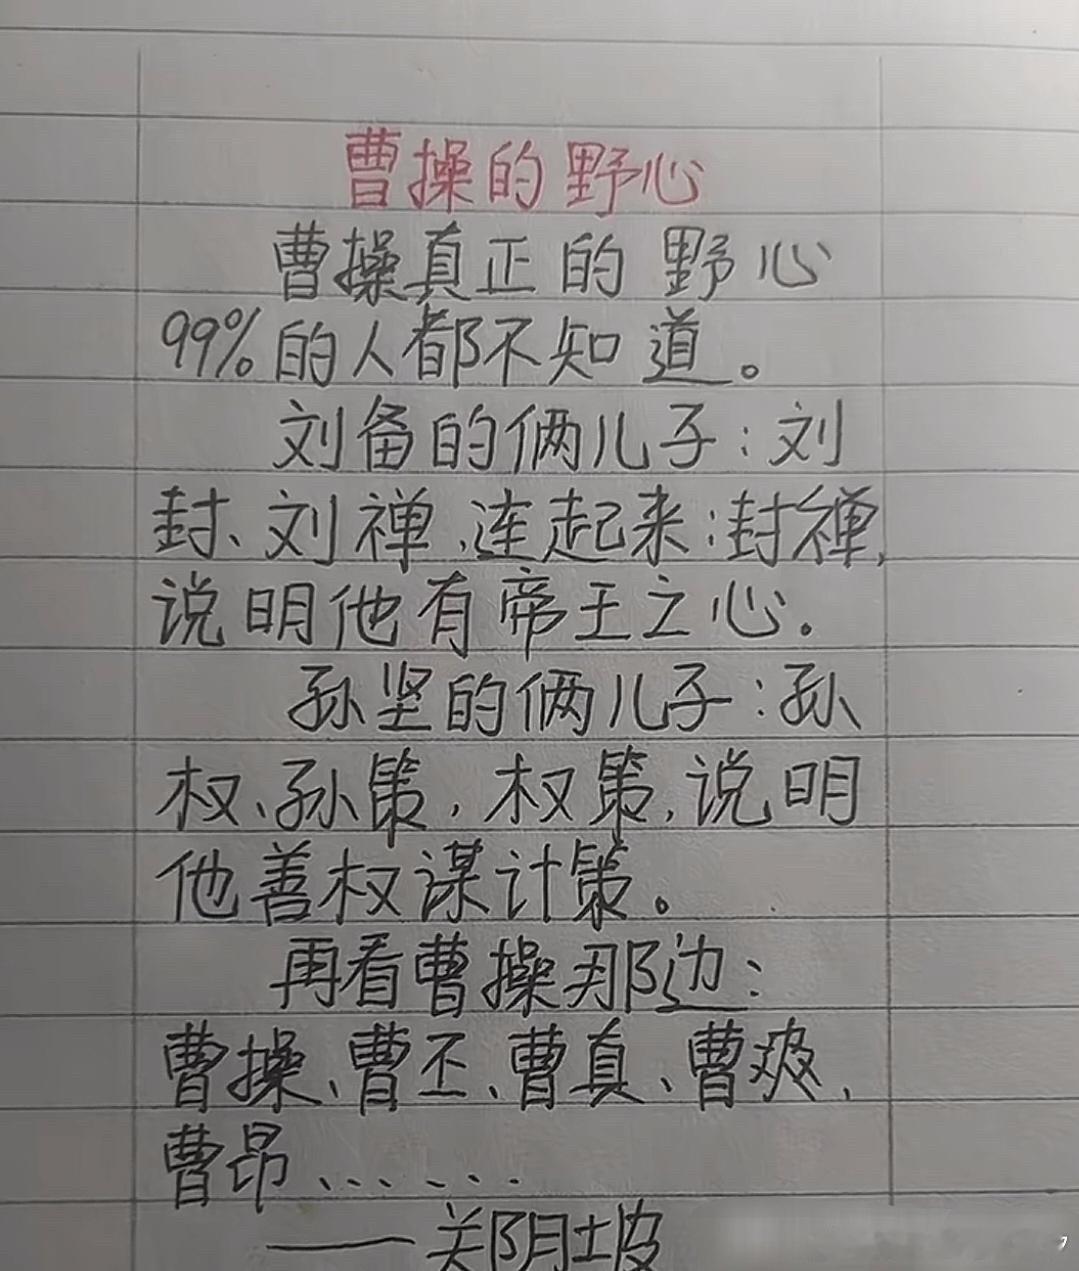 曹操的野心
曹操真正的野心
99%的人都不知道。
刘备的俩儿子:刘
封、刘禅,连起来:封禅,
说明他有帝王之心.
孙坚的俩儿子:孙
权、孙策,权策,说明
他善权谋计策。
再看曹操那边:
曹操、曹丕、曹真、曹爽、
曹昂......
——关阴坡